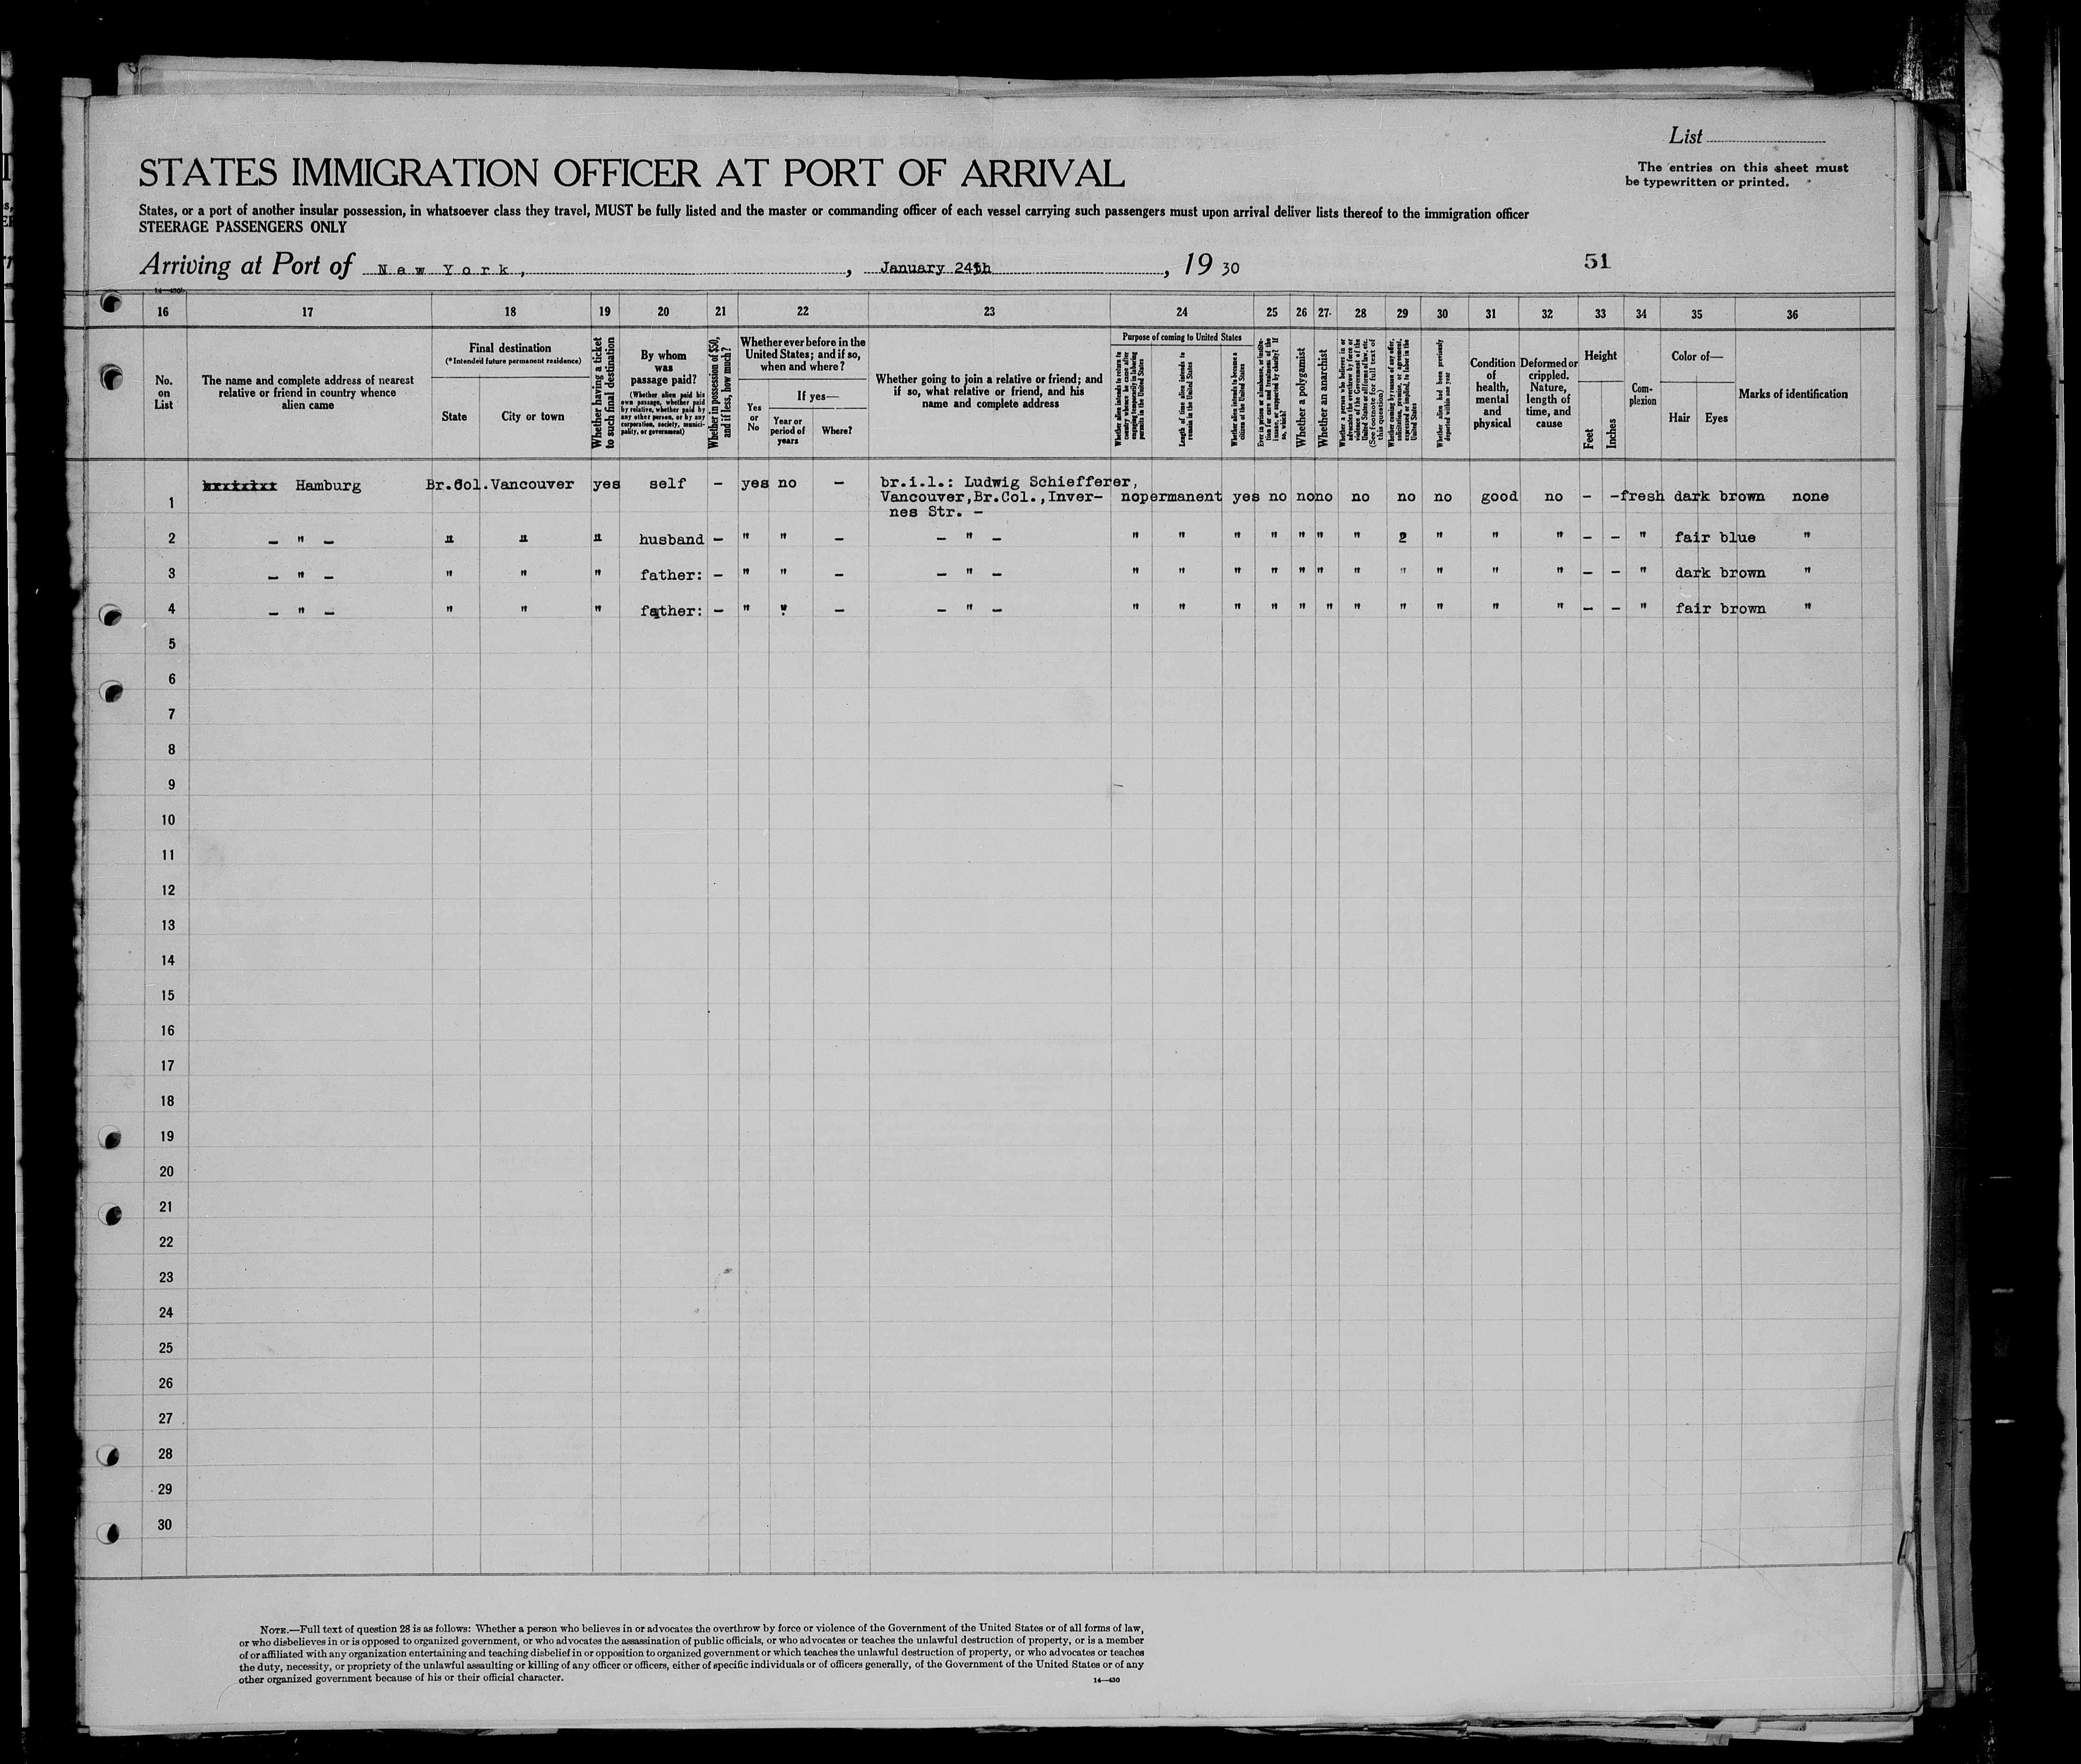 List
The entries on this sheet must
be typewritten or printed.
STATES IMMIGRATION OFFICER AT PORT OF ARRIVAL
States, or a port of another insular possession, in whatsoever class they travel, MUST be fully listed and the master or commanding officer of each vessel carrying such passengers must upon arrival deliver lists thereof to the immigration officer
STEERAGE PASSENGERS ONLY
Arriving at Port of New York, , January 24th , 19 30
51
16 17 18 19 20 21 22 23 24 25 26 27 28 29 30 31 32 33 34 35 36
No. on List
The name and complete address of nearest relative or friend in country whence alien came
Final destination
(*Intended future permanent residence)
State
City or town
Whether having a ticket to such final destination
By whom was passage paid?
(Whether alien paid his own passage, whether paid by relative, whether paid by any other person, or by any corporation, society, municipality, or government)
Whether in possession of $50, and if less, how much?
Whether ever before in the United States; and if so, when and where?
Yes or No
If yes—
Year or period of years
Where?
Whether going to join a relative or friend; and if so, what relative or friend, and his name and complete address
Purpose of coming to United States
Length of time alien intends to remain in the United States
Whether alien intends to become a citizen of the United States
Whether a polygamist
Whether an anarchist
Whether alien had been previously deported within one year
Condition of health, mental and physical
Deformed or crippled. Nature, length of time, and cause
Height
Feet
Inches
Complexion
Color of—
Hair
Eyes
Marks of identification
1 Hamburg Br.Col. Vancouver yes self - yes no - br.i.l.: Ludwig Schiefferer,
Vancouver,Br.Col.,Inver- no permanent yes no no no no no no good no - - fresh dark brown none
nes Str. -
2 - " - " " " husband - " " - - " - " " " " " " " 2 " " " - - " fair blue "
3 - " - " " " father: - " " - - " - " " " " " " " " " " " - - " dark brown "
4 - " - " " " father: - " " - - " - " " " " " " " " " " " - - " fair brown "
5
6
7
8
9
10
11
12
13
14
15
16
17
18
19
20
21
22
23
24
25
26
27
28
29
30
NOTE.—Full text of question 28 is as follows: Whether a person who believes in or advocates the overthrow by force or violence of the Government of the United States or of all forms of law,
or who disbelieves in or is opposed to organized government, or who advocates the assassination of public officials, or who advocates or teaches the unlawful destruction of property, or is a member
of or affiliated with any organization entertaining and teaching disbelief in or opposition to organized government or which teaches the unlawful destruction of property, or who advocates or teaches
the duty, necessity, or propriety of the unlawful assaulting or killing of any officer or officers, either of specific individuals or of officers generally, of the Government of the United States or of any
other organized government because of his or their official character.
14—430